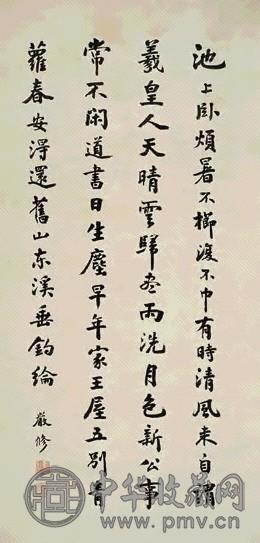 池上卧煩暑不櫛復不巾有時清風来自謂
羲皇人天晴雲歸盡雨洗月色新公事
常不閑道書日生塵早年家王屋五別青
蘿春安淂還舊山东溪垂釣綸
嚴修
中华收藏网
www.pmv.cn